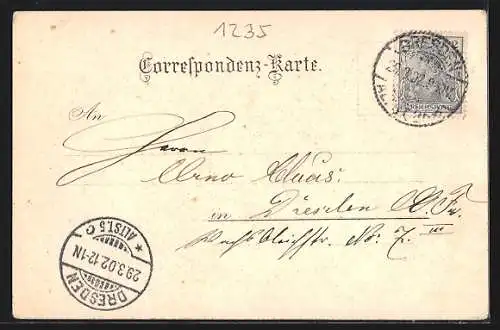 1235
DRESDEN
Correspondenz-Karte.
An
Herrn
Arno Claus.
in Dresden
Wachsbleichstr. No: 7. III
DRESDEN
29.3.02.12-1N
* ALTST.5 C